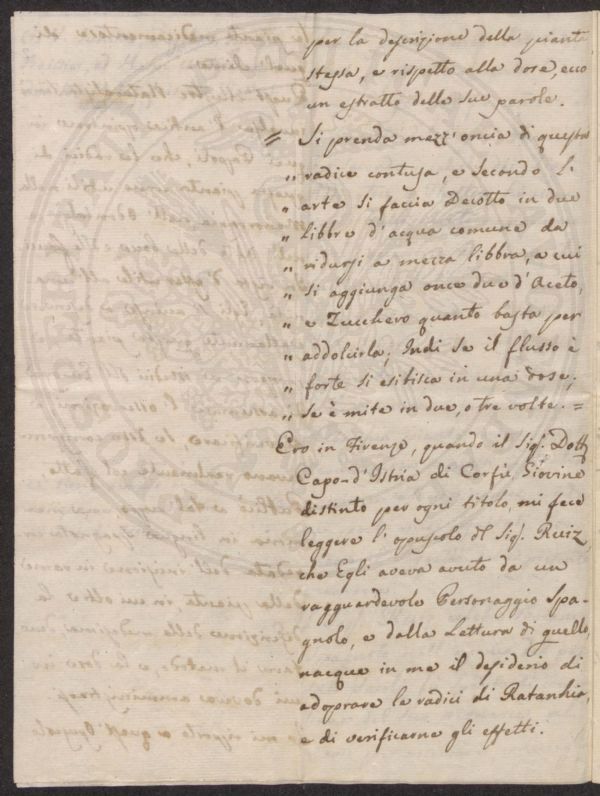 per la descrizione della pianta
stessa, e rispetto alla dose, ecco
un estratto delle sue parole.
= Si prenda mezz'oncia di questa
" radice contusa, e secondo l'
" arte si faccia Decotto in due
" libbre d'acqua comune da
" ridursi a mezza libbra, a cui
" si aggiunga once due d'Aceto,
" e Zucchero quanto basta per
" addolcirla; Indi se il flusso è
" forte si esitisca in una dose;
" se è mite in due, o tre volte. =
Ero in Firenze, quando il Sigr. Dottr
Capo-d'Istria di Corfù, Giovine
distinto per ogni titolo, mi fece
leggere l'opuscolo dl Sigr. Ruiz,
che Egli aveva avuto da un
ragguardevole Personaggio Spa-
gnolo, e dalla Lettura di quello,
nacque in me il desiderio di
adoprare le radici di Ratanhia,
e di verificarne gli effetti.